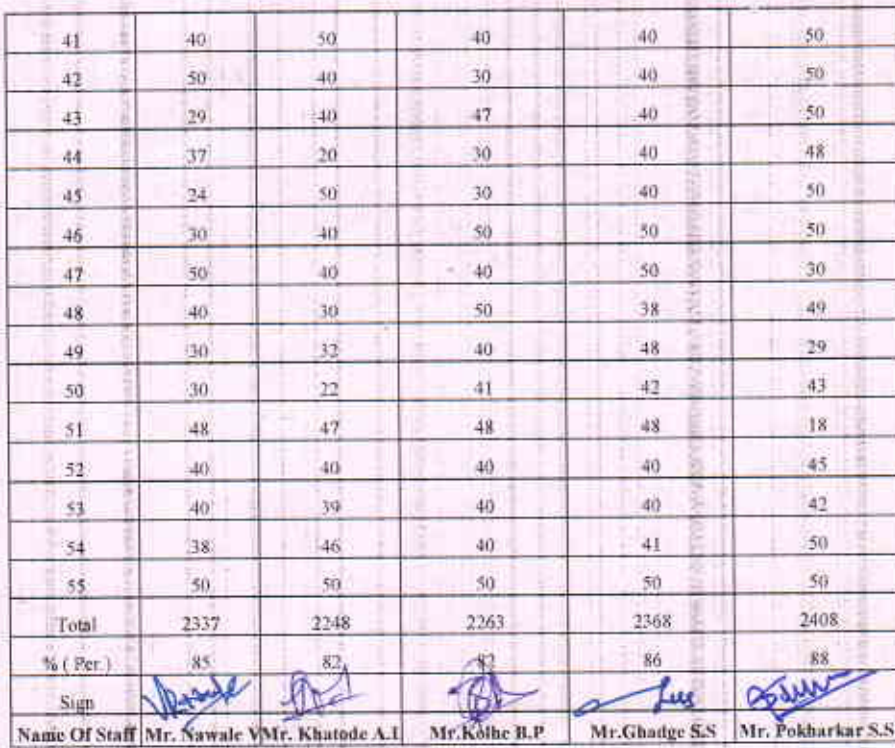 41 40 50 40 40 50
42 50 40 30 40 50
43 29 40 47 40 50
44 37 20 30 40 48
45 24 50 30 40 50
46 30 40 50 50 50
47 50 40 40 50 30
48 40 30 50 38 49
49 30 32 40 48 29
50 30 22 41 42 43
51 48 47 48 48 18
52 40 40 40 40 45
53 40 39 40 40 42
54 38 46 40 41 50
55 50 50 50 50 50
Total 2337 2248 2263 2368 2408
% ( Per.) 85 82 82 86 88
Sign
Name Of Staff Mr. Nawale V Mr. Khatode A.I Mr.Kolhe B.P Mr.Ghadge S.S Mr. Pokharkar S.S